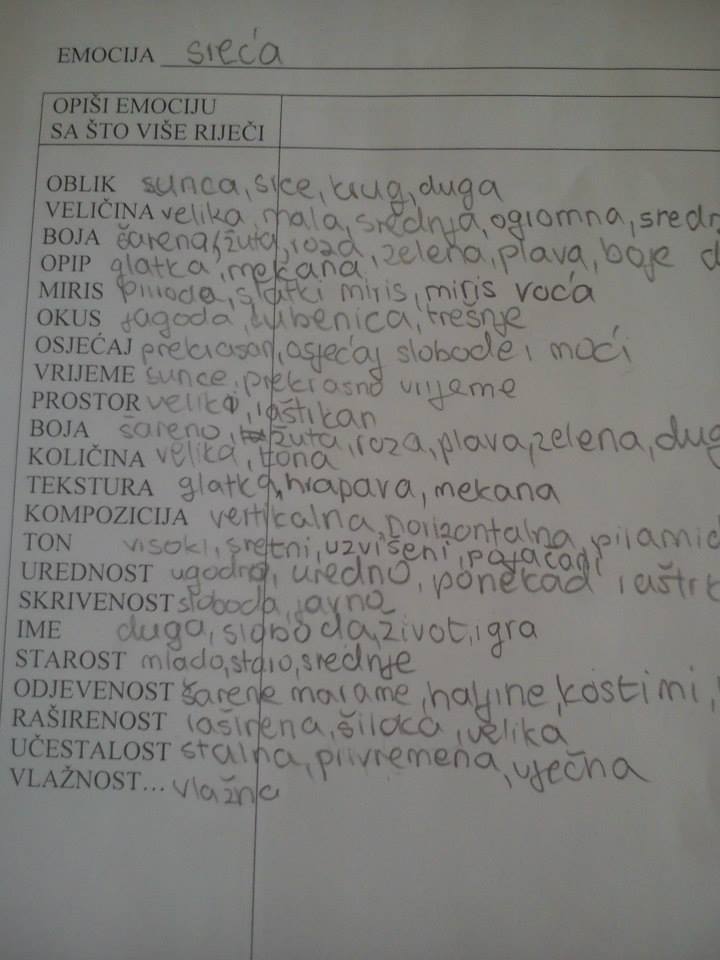 EMOCIJA sreća
OPIŠI EMOCIJU
SA ŠTO VIŠE RIJEČI
OBLIK sunca, srce, krug, duga
VELIČINA velika, mala, srednja, ogromna, sredn
BOJA šarena, žuta, roza, zelena, plava, boje d
OPIP glatka, mekana
MIRIS priroda, slatki miris, miris voća
OKUS jagoda, lubenica, trešnje
OSJEĆAJ prekrasan, osjećaj slobode i moći
VRIJEME sunce, prekrasno vrijeme
PROSTOR veliki, raštrkan
BOJA šareno, žuta, roza, plava, zelena, dug
KOLIČINA velika, tona
TEKSTURA glatka, hrapava, mekana
KOMPOZICIJA vertikalna, horizontalna, piramid
TON visoki, sretni, uzvišeni, pojačani
UREDNOST ugodno, uredno, ponekad raštrk
SKRIVENOST sloboda, javno
IME duga, sloboda, život, igra
STAROST mlado, staro, srednje
ODJEVENOST šarene marame, haljine, kostimi,
RAŠIRENOST raširena, široka, velika
UČESTALOST stalna, privremena, vječna
VLAŽNOST... vlažna